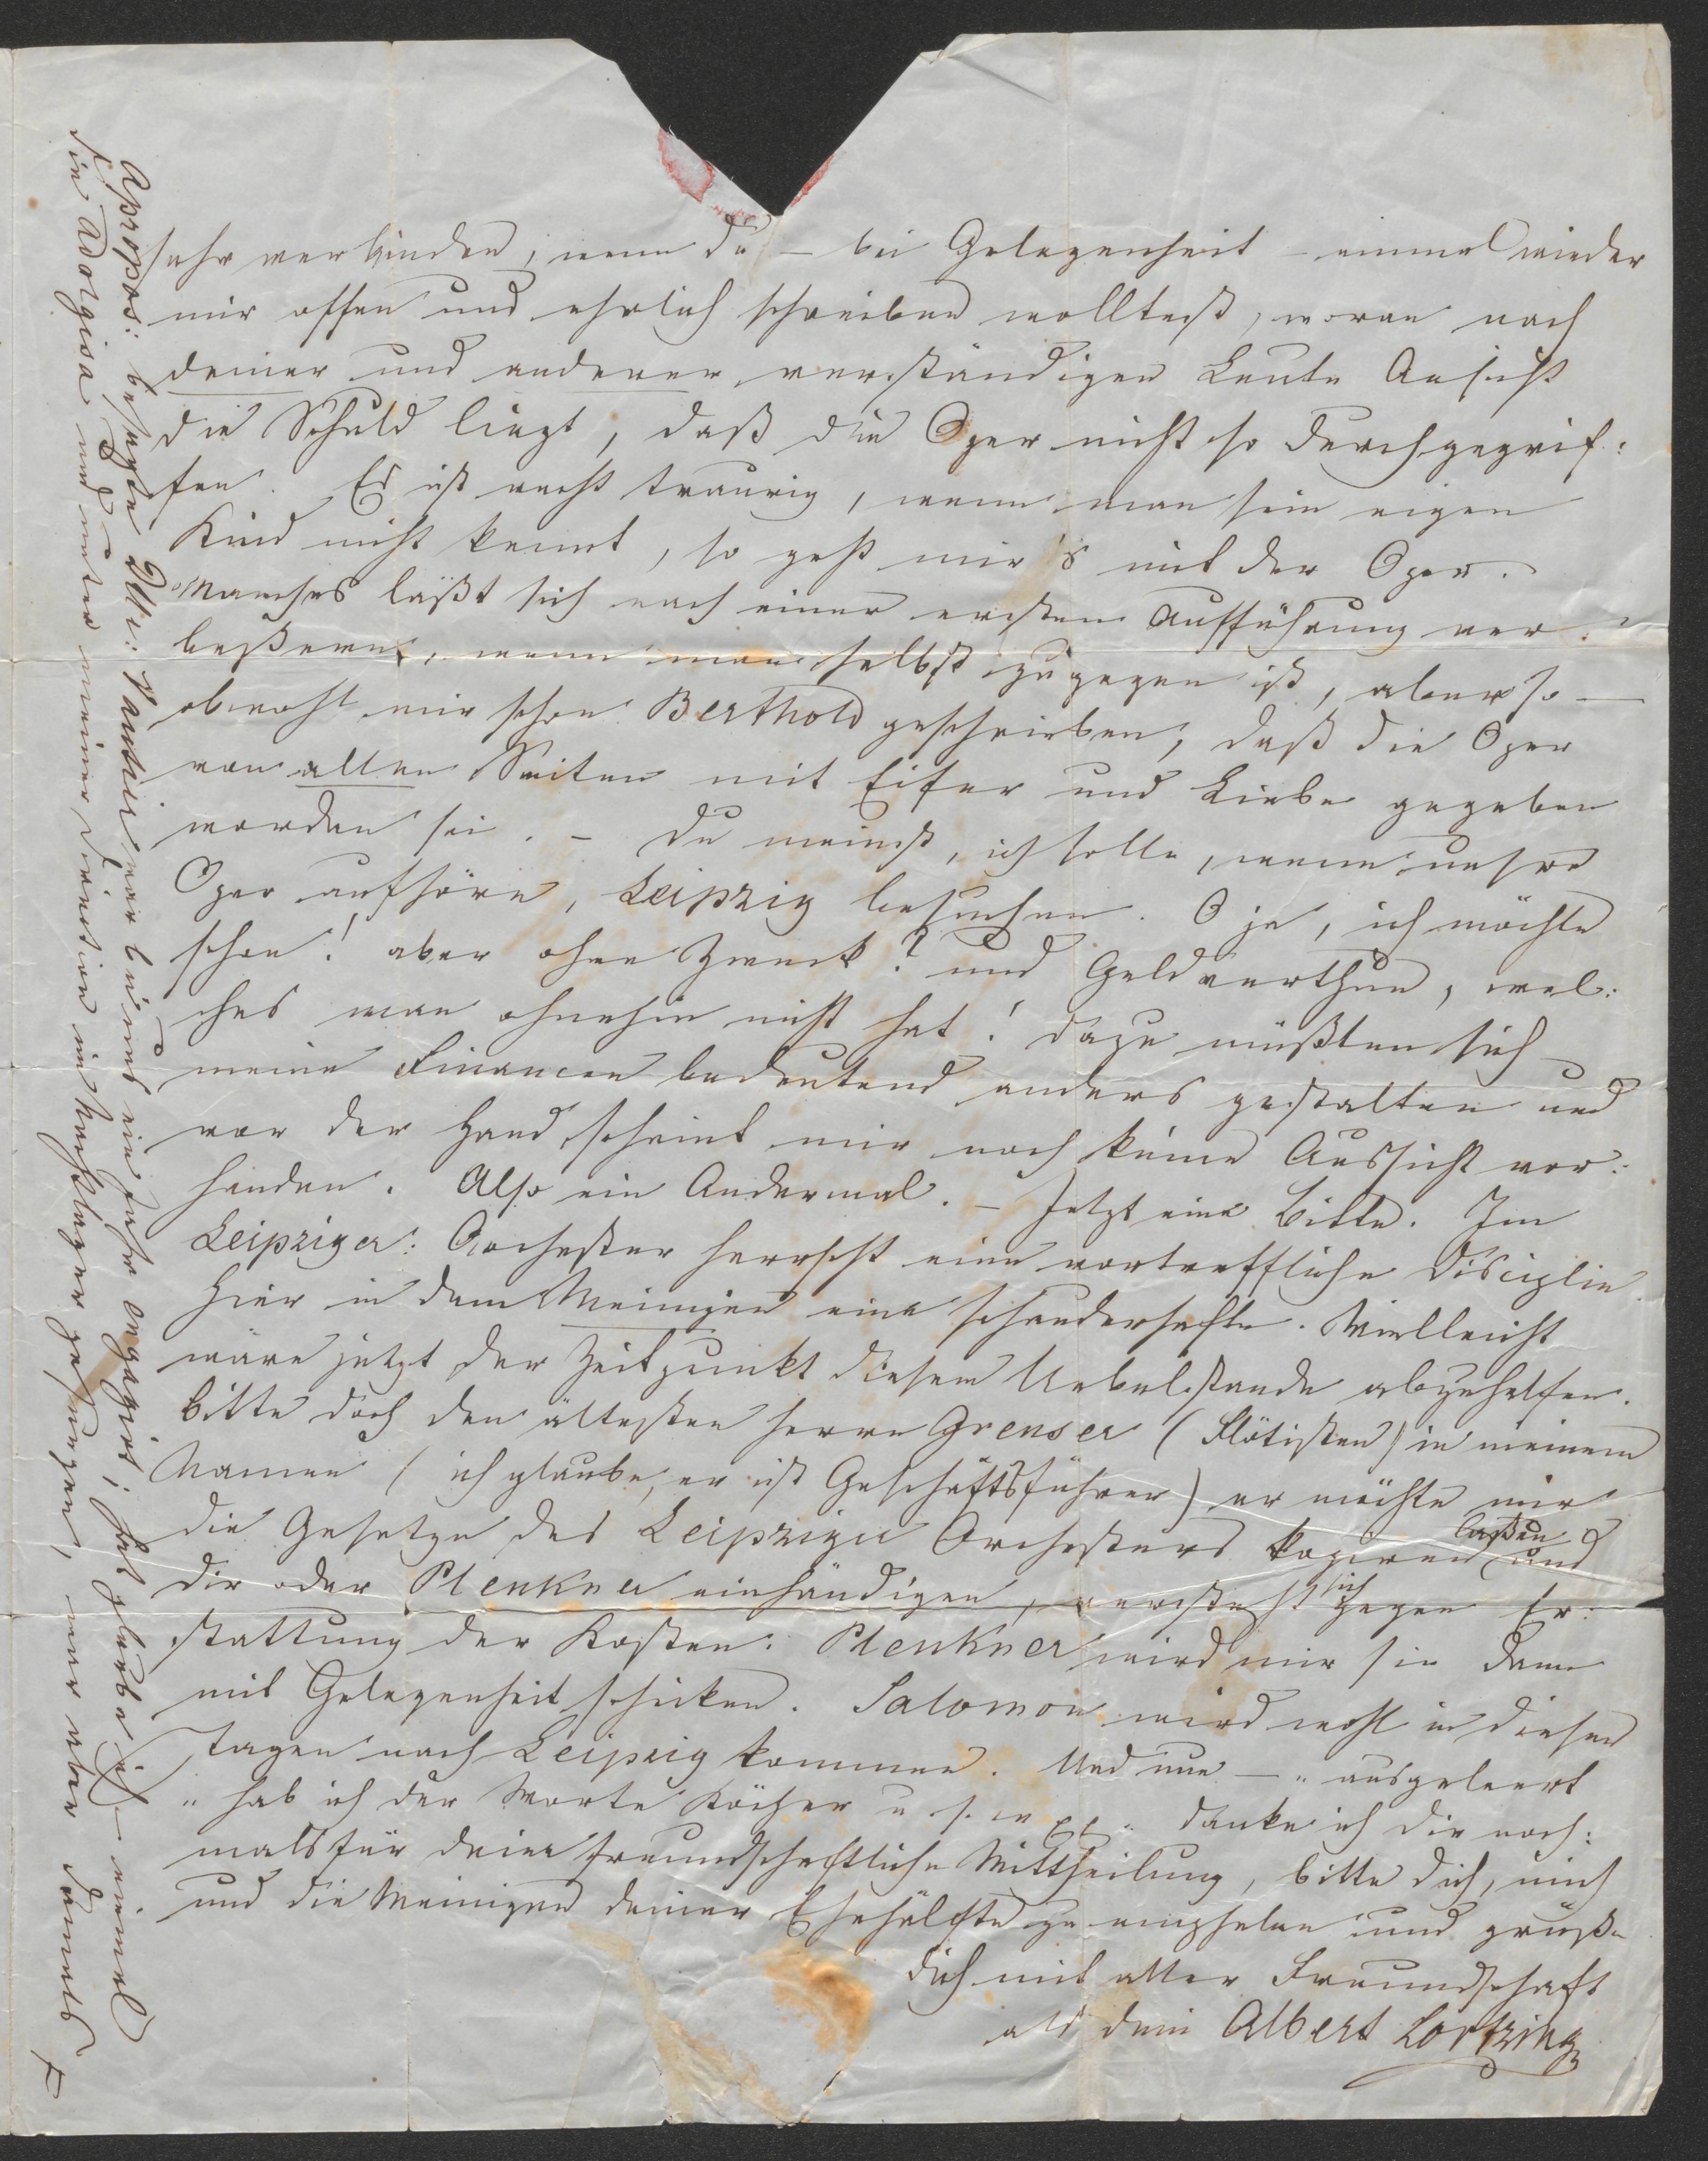 sehr verbinden, wenn Du – bei Gelegenheit – einmal wieder
mir offen und ehrlich schreiben wolltest, woran nach
deiner und anderer verständigen Leute Ansicht
die Schuld liegt, daß die Oper nicht so durchgegrif:
fen. Es ist recht traurig, wenn man sein eigen
Kind nicht kennt, so geht mir's mit der Oper.
Manches läßt sich nach einer ersten Aufführung ver:
beßern, wenn man selbst zugegen ist, aber so —
obwohl mir schon Berthold geschrieben, daß die Oper
von allen Seiten mit Eifer und Liebe gegeben
worden sei. – Du meinst, ich solle, wenn unsre
Oper aufhöre, Leipzig besuchen. O ja, ich möchte
schon! aber ohne Zweck? und Geld verthun, wel:
ches man ohnehin nicht hat! dazu müßten sich
meine Financen bedeutend anders gestalten und
vor der Hand scheint mir noch keine Aussicht vor:
handen. Also ein Andermal. – Jetzt eine Bitte. Im
Leipziger: Orchester herrscht eine vortreffliche Disciplin.
Hier in dem Meinigen eine schauderhafte. Vielleicht
wäre jetzt der Zeitpunkt diesem Uebelstande abzuhelfen.
Bitte doch den ältesten Herrn Grenser (Flötisten) in meinem
Namen (ich glaube, er ist Geschäftsführer) er möchte mir
die Gesetze des Leipziger Orchesters kopiren laßen und
dir oder Plenkner einhändigen, versteht sich gegen Er:
stattung der Kosten. Plenkner wird mir sie dann
mit Gelegenheit schicken. Salomon wird wohl in diesen
Tagen nach Leipzig kommen. Und nun — „ausgeleert
„hab ich der Worte Köcher u. s. w. pp“ danke ich dir noch:
mals für deine freundschaftliche Mittheilung, bitte dich, mich
und die Meinigen deiner Ehehälfte zu empfelen und grüße
dich mit alter Freundschaft
als dein Albert Lortzing
Apropos: besagte Dll: war bei uns ein Jahr engagirt; hat glaube ich – einmal
die Adalgisa und unter meiner Direction im Nachtlager gesungen, war aber damals